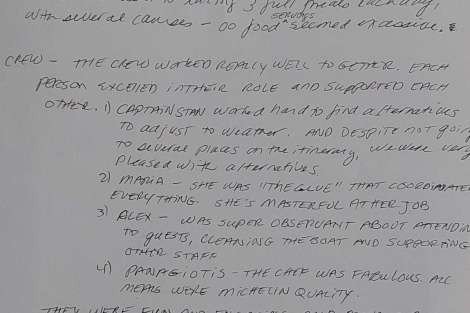 to eating 3 full meals each day,
with several courses - so food servings seemed excessive.
CREW - THE CREW WORKED REALLY WELL TOGETHER. EACH
PERSON EXCELLED IN THEIR ROLE AND SUPPORTED EACH
OTHER. 1) CAPTAIN STAN worked hard to find alternatives
TO adjust to weather. AND DESPITE not going
to several places on the itinerary, we were very
pleased with alternatives.
2) MARIA - SHE WAS "THE GLUE" THAT COORDINATED
EVERYTHING. SHE'S MASTERFUL AT HER JOB
3) ALEX - WAS SUPER OBSERVANT ABOUT ATTENDING
TO GUESTS, CLEANING THE BOAT AND SUPPORTING
OTHER STAFF
4) PANAGIOTIS - THE CHEF WAS FABULOUS. ALL
MEALS WERE MICHELIN QUALITY.
THEY WERE FUN AND